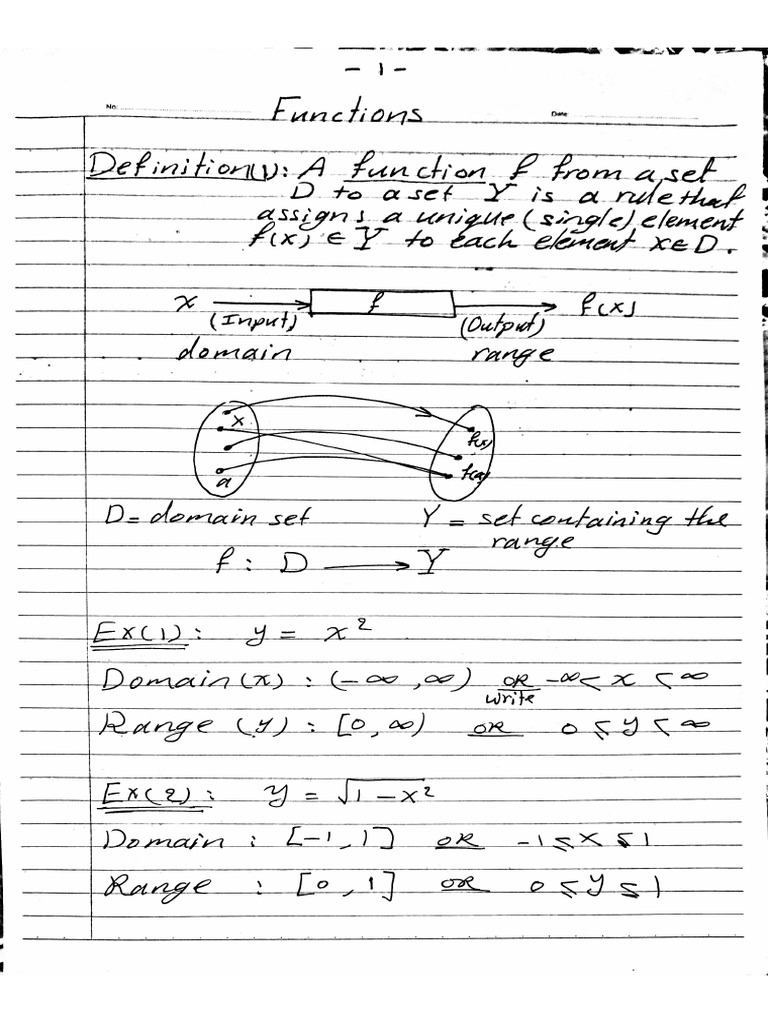 - 1 -
No:
Date
Functions
Definition(1): A function f from a set
D to a set Y is a rule that
assigns a unique (single) element
f(x) ∈ Y to each element x ∈ D.
x f f(x)
(Input) (Output)
domain range
x f(x)
a f(a)
D = domain set Y = set containing the
range
f : D → Y
Ex(1): y = x²
Domain(x) : (-∞, ∞) OR -∞ < x < ∞
write
Range (y) : [0, ∞) OR 0 ≤ y < ∞
Ex(2): y = √1-x²
Domain : [-1, 1] OR -1 ≤ x ≤ 1
Range : [0, 1] OR 0 ≤ y ≤ 1